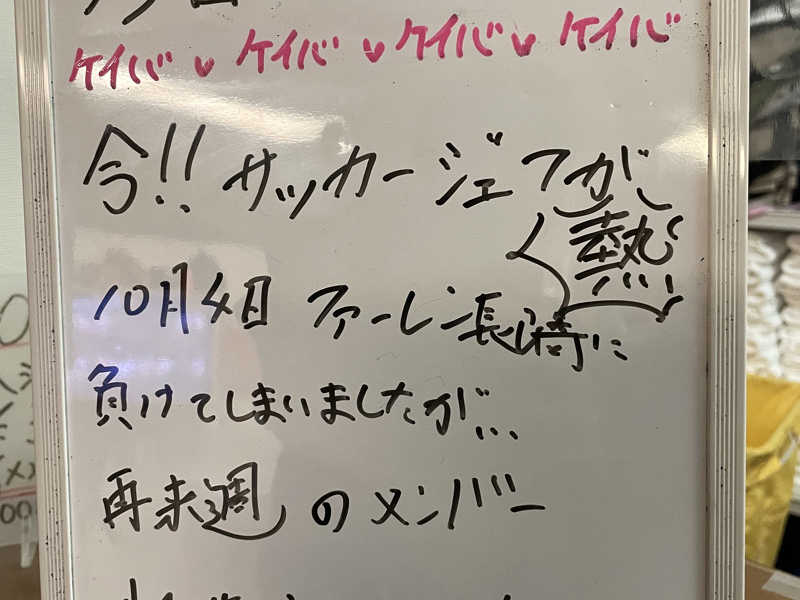 ケイバ♥ケイバ♥ケイバ♥ケイバ
今!!サッカージェフが
熱く
10月4日 ファーレン長崎に
負けてしまいましたが…
再来週のメンバー